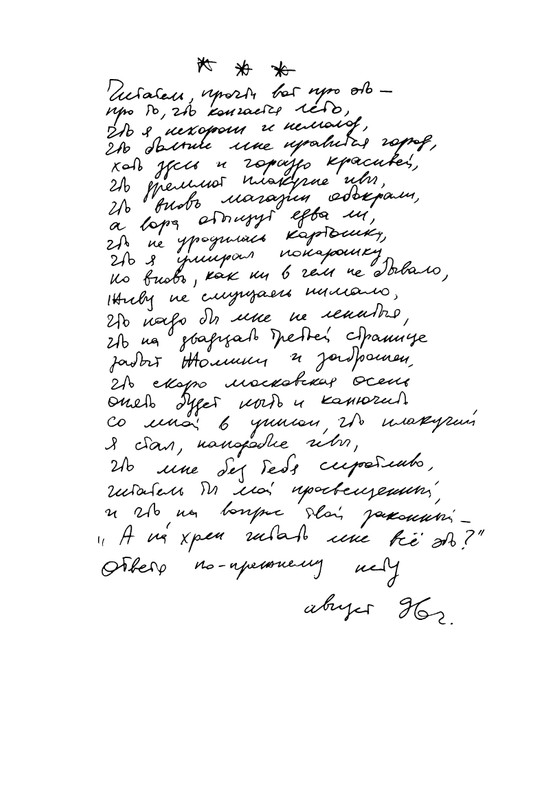 * * *
Читатель, прочти вот про это —
про то, что кончается лето,
что я нехорош и немолод,
что больше мне нравится город,
хоть здесь и гораздо красивей,
что дремлют плакучие ивы,
что вновь магазин обокрали,
а вора отыщут едва ли,
что не уродилась картошка,
что я умирал понарошку
но вновь, как ни в чем не бывало,
живу не смущаясь нимало,
что надо бы мне не лениться,
что на двадцать третьей странице
забыт Жомини и заброшен,
что скоро московская осень
опять будет ныть и канючить
со мной в унисон, что плакучий
я стал, наподобие ивы,
что мне без тебя сиротливо,
читатель ты мой просвещенный,
и что на вопрос твой законный —
"А на́ хрен читать мне всё это?"
ответа по-прежнему нету
август 96 г.